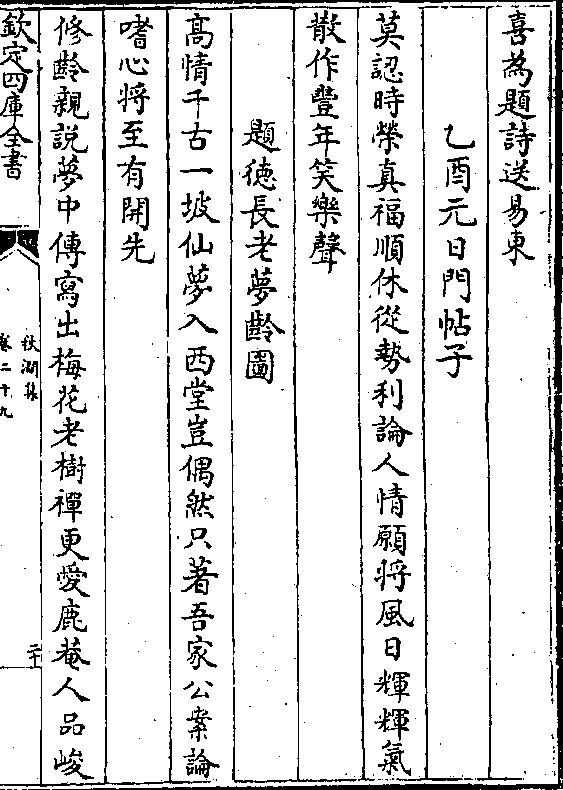 喜為題詩送易東
乙酉元日門帖子
莫認時榮真福順休從勢利論人情願將風日輝輝氣
散作豐年笑樂聲
題徳長老夢齡圖
髙情千古一坡仙夢入西堂豈偶然只著吾家公案論
嗜心将至有開先
修齡親説夢中傳寫出梅花老樹禪更愛鹿菴人品峻
欽定四庫全書
秋澗集
卷二十九
二十